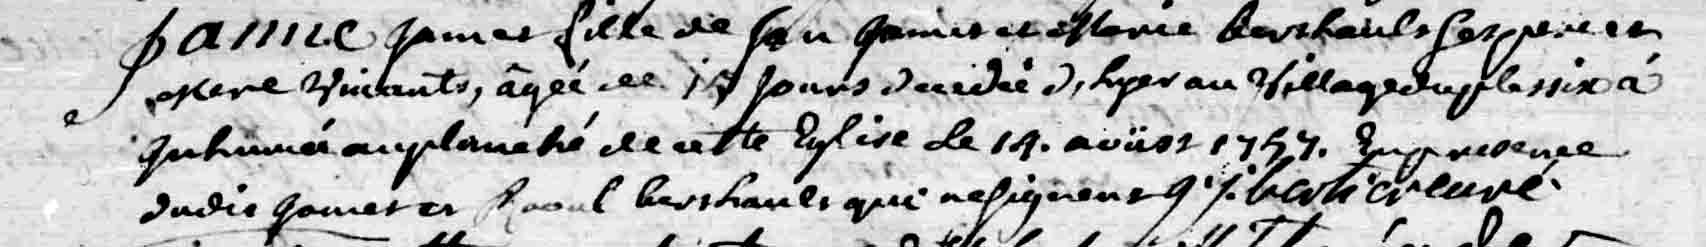 Janne James fille de Jan James et Marie Bershault ses pere et
mere vivants, agée de 15 jours decedée d'hyer au village du plessix a
esté
inhumée au planché de cette Eglise le 14. aoüst 1757. En presence
dudit James et Raoul Bershault qui ne signent